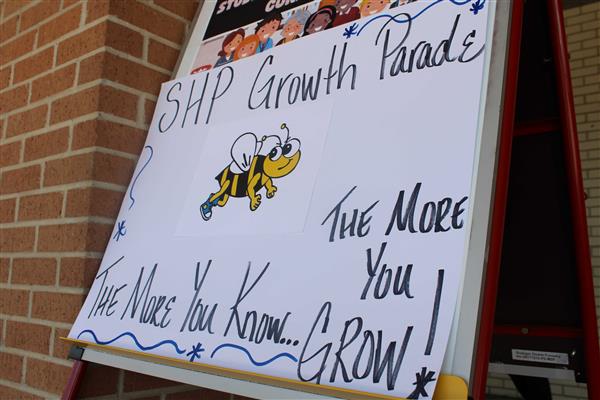 SHP Growth Parade
The More You Know...
The More
You
Grow!